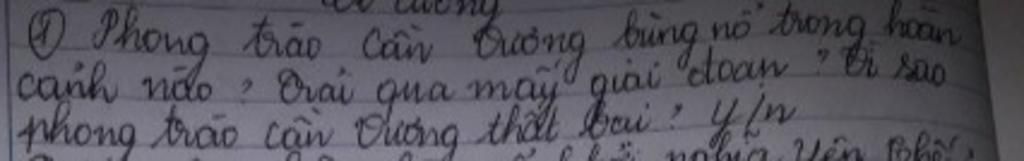 ① Phong trào Cần Vương bùng nổ trong hoàn
cảnh nào? Trải qua mấy giai đoạn? Vì sao
phong trào cần Vương thất bại? Y/n
nghĩa Yên Thế